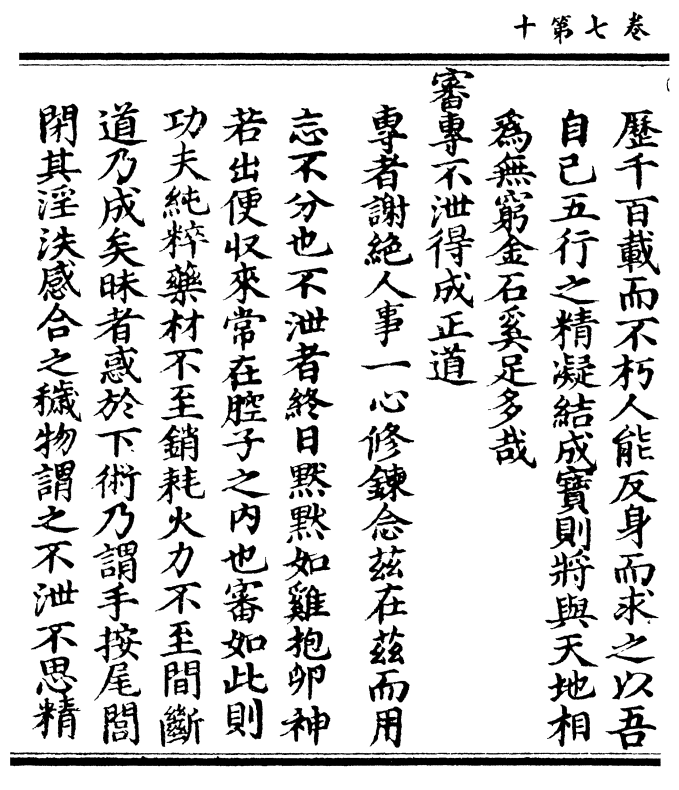 卷七第十
歷千百載而不朽人能反身而求之以吾
自己五行之精凝結成寶則將與天地相
為無窮金石奚足多哉
審專不泄得成正道
專者謝絶人事一心修鍊念茲在茲而用
志不分也不泄者終日默默如雞抱卵神
若出便収來常在腔子之內也審如此則
功夫純粹藥材不至銷耗火力不至間斷
道乃成矣昧者惑於下術乃謂手按尾閭
閉其淫泆感合之穢物謂之不泄不思精